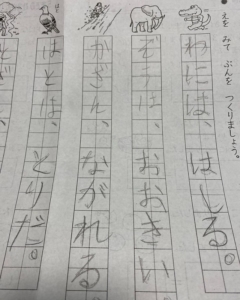 えを みて ぶんを つくりましょう。
わには、はしる。
ぞうは、おおきい
かざん、ながれる
はとは、とりだ。